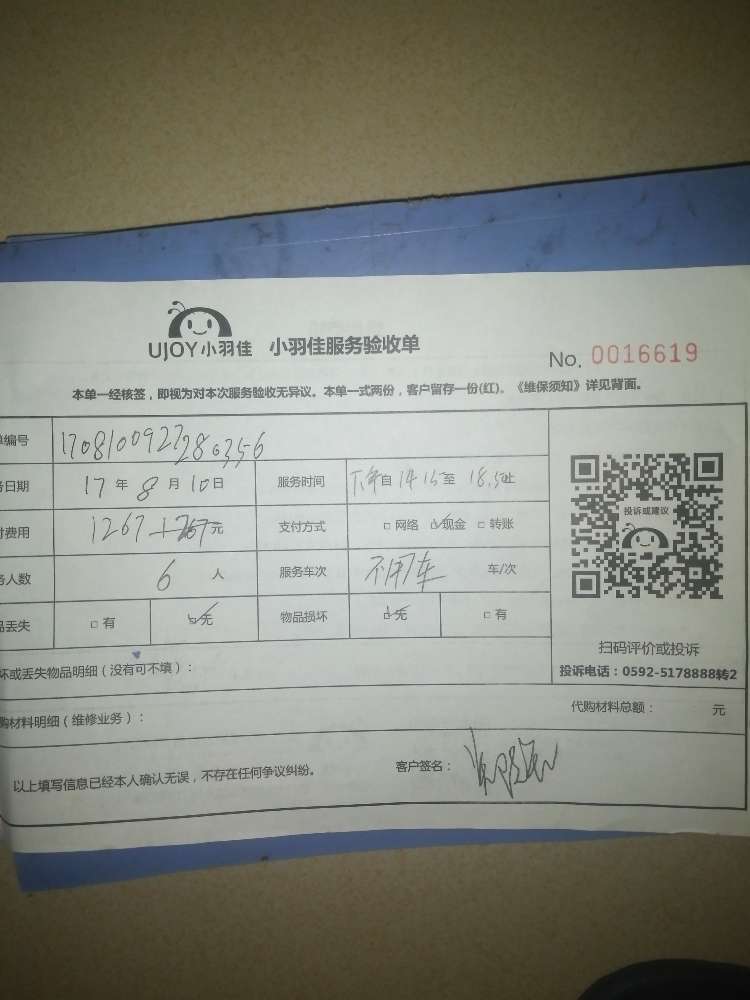 UJOY小羽佳 小羽佳服务验收单
No. 0016619
本单一经核签，即视为对本次服务验收无异议。本单一式两份，客户留存一份(红)。《维保须知》详见背面。
单编号 170810092728 0356
务日期 17 年 8 月 10 日 服务时间 下午自 14 15 至 18.5 止
付费用 1267 元 支付方式 □ 网络 ☑ 现金 □ 转账
务人数 6 人 服务车次 不用车 车/次
品丢失 □ 有 ☑ 无 物品损坏 ☑ 无 □ 有
投诉或建议
扫码评价或投诉
投诉电话：0592-5178888转2
坏或丢失物品明细（没有可不填）：
购材料明细（维修业务）： 代购材料总额： 元
以上填写信息已经本人确认无误，不存在任何争议纠纷。 客户签名：